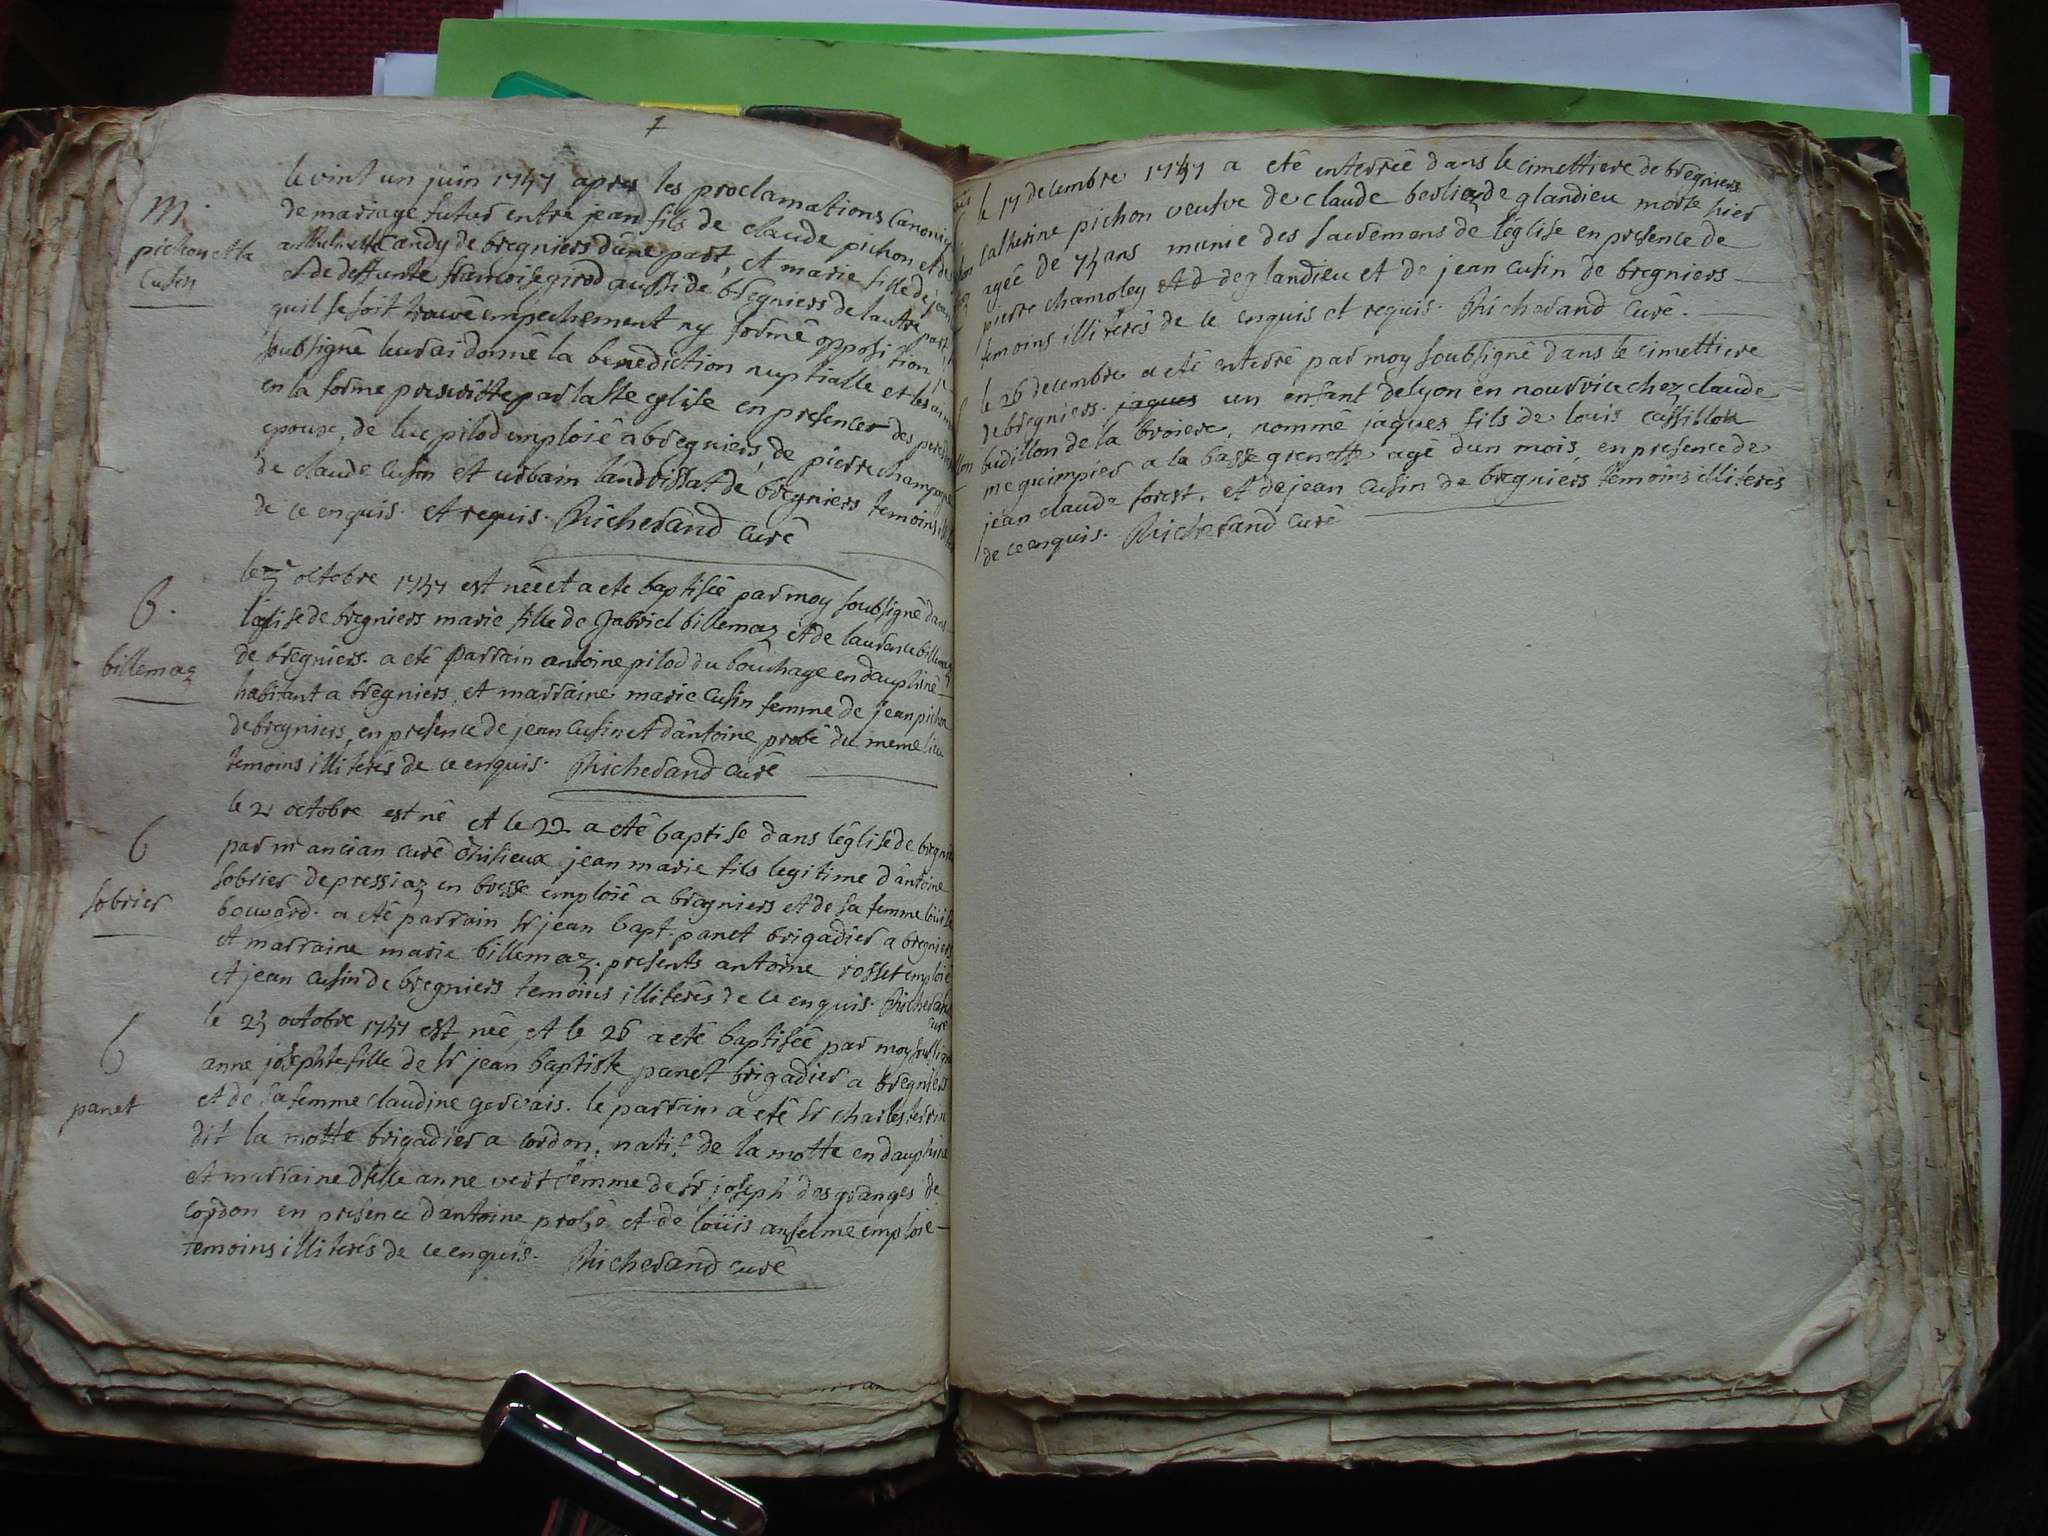 7
M.
pichon et la
Cusin
le vint un juin 1747 apres les proclamations Canoniq
de mariage futur entre jean fils de claude pichon et de
Candy de bregniers dûne part, et marie fille de jean
et de deffunte francoise girod aussi de brêgniers de lautre part,
quil se soit trouvê empechement ny formê opposition
soubsignê leur ai donnê la benediction nuptialle et les ai
en la forme prescritte par la Ste eglise en presences des peres
epoux, de luc pilod emploiê a bregniers, de pierre champagne
de claude Cusin et urbain landrissat de bregniers temoins
de ce enquis. et requis. Richerand Curê
B.
billemaz
le octobre 1747 est nêe et a ete baptisêe par moy soubsignê dans
lêglise de bregniers marie fille de gabriel billemaz et de laurence billemaz
de brêgniers. a etê parrain antoine pilod du bouchage en dauphinê
habitant a brêgniers, et marraine marie Cusin femme de jean pichon
de bregniers, en presence de jean Cusin et dântoine probê du meme lieu
temoins illiterês de ce enquis. Richerand curê
6
sobrier
le 21 octobre est nê et le 22 a etê baptise dans lêglise de bregn
par mr ancian curê jean marie fils legitime dântoine
sobrier de pressiaz en bresse emploiê a brêgniers et de sa femme loüise
bouvard. a etê parrain sr jean bapt. panet brigadier a bregniers
et marraine marie billemaz. presents antoine rosset emploiê
et jean Cusin de bregniers temoins illiterês de ce enquis. Richerand
curê
6
panet
le 25 octobre 1747 est nêe et le 26 a etê baptisêe par moy soubsignê
anne josephte fille de sr jean baptiste panet brigadier a brêgniers
et de sa femme claudine gervais. le parrain a etê sr charles
dit la motte brigadier a cordon, natif de la motte en dauphinê
et marraine dlle anne vert femme de sr joseph des granges de
cordon en presence dantoine probê et de loüis anselme emploiê
temoins illiterês de ce enquis. Richerand curê
le 17 decembre 1747 a etê enterrêe dans le cimettiere de brêgniers
catherine pichon veufve de claude berliaz de glandieu morte hier
agêe de 75 ans munie des sacrêmens de lêglise en presence de
pierre chamoley et d de glandieu et de jean Cusin de bregniers
temoins illiterês de ce enquis et requis. Richerand Curê.
le 26 decembre a etê enterrê par moy soubsignê dans le cimettiere
de bregniers. jaques un enfant de lyon en nourrice chez claude
budillon de la broiere, nommê jaques fils de louis cassillon
me guimpier a la basse grenette agê dun mois, en presence de
jean claude forest, et de jean Cusin de bregniers temoins illiterês
de ce enquis. Richerand Curê